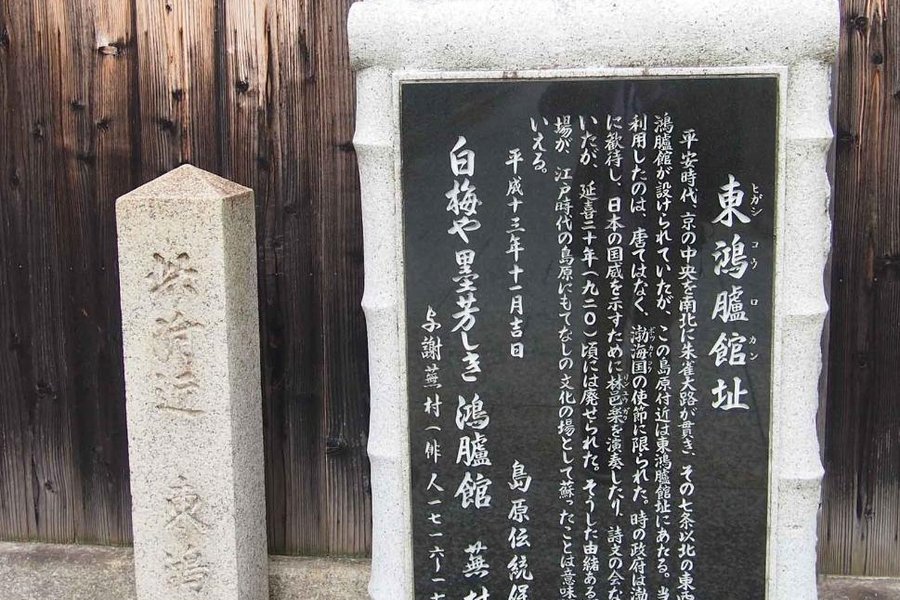 東鴻臚館址
ヒガシ コウ ロ カン
平安時代、京の中央を南北に朱雀大路が貫き、その七条以北の東西
鴻臚館が設けられていたが、この島原付近は東鴻臚館址にあたる。当
利用したのは、唐ではなく、渤海国の使節に限られた。時の政府は渤
に歓待し、日本の国威を示すために林邑楽を演奏したり、詩文の会な
いたが、延喜二十年(九二〇)頃には廃せられた。そうした由緒ある
場が、江戸時代の島原にもてなしの文化の場として蘇ったことは意味
いえる。
平成十三年十一月吉日
島原伝統保
白梅や墨芳しき鴻臚館 蕪村
与謝蕪村(俳人一七一六〜一七
東鴻